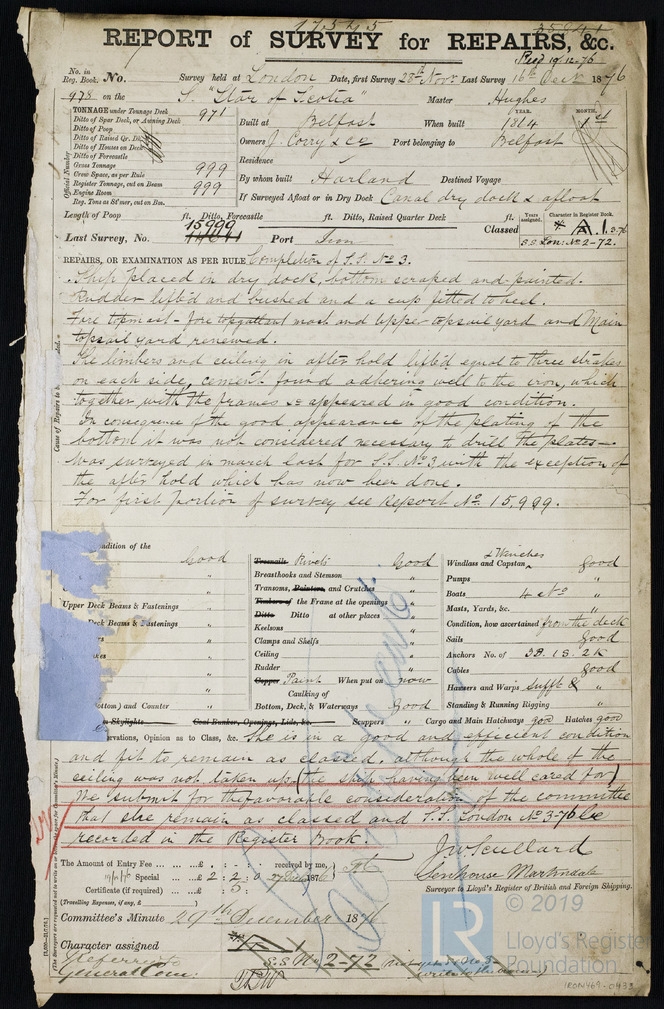 17525
35941
REPORT of SURVEY for REPAIRS, &c.
Recd 19/12/76
No. in Reg. Book. No. Survey held at London Date, first Survey 28th Novr Last Survey 16th Decr 1876
978 on the S. "Star of Scotia" Master Hughes
TONNAGE under Tonnage Deck 971
Ditto of Spar Deck, or Awning Deck
Ditto of Poop
Ditto of Raised Qr. Dk.
Ditto of Houses on Deck
Ditto of Forecastle
Gross Tonnage 999
Crew Space, as per Rule
Register Tonnage, cut on Beam 999
Engine Room
Reg. Tons as St'mer, cut on Bm.
Official Number
Built at Belfast When built YEAR. 1864 MONTH.
Owners J. Corry & Co Port belonging to Belfast
Residence
By whom built Harland Destined Voyage
If Surveyed Afloat or in Dry Dock Canal dry dock & afloat
Length of Poop ft. Ditto, Forecastle ft. Ditto, Raised Quarter Deck ft.
15999
Last Survey, No. Port Iron Classed
Years assigned. Character in Register Book.
A 1 3-76
S.S. Lon: No 2-72.
REPAIRS, OR EXAMINATION AS PER RULE Completion of S.S. No 3.
Ship placed in dry dock, bottom scraped and painted.
Rudder lifted and bushed and a cup fitted to heel.
Fore topmast - fore topgallant mast and upper topsail yard and Main
topsail yard renewed.
The limbers and ceiling in after hold lifted equal to three strakes
on each side, cement found adhering well to the iron, which
together with the frames &c appeared in good condition.
In consequence of the good appearance of the plating of the
bottom it was not considered necessary to drill the plates -
Was surveyed in March last for S.S. No 3 with the exception of
the after hold which has now been done.
For first portion of survey see Report No. 15,999.
Cause of Repairs to be
ndition of the Good
Upper Deck Beams & Fastenings "
Deck Beams & Fastenings "
ottom) and Counter "
Treenails Rivets Good
Breasthooks and Stemson "
Transoms, Pointers, and Crutches "
Timbers of the Frame at the openings "
Ditto Ditto at other places "
Keelsons "
Clamps and Shelfs "
Ceiling "
Rudder "
Copper Paint When put on now
Caulking of
Bottom, Deck, & Waterways Good
& Winches
Windlass and Capstan good
Pumps "
Boats "
Masts, Yards, &c. "
Condition, how ascertained from the deck
Sails good
Anchors No. of 3B. 1S. 2K
Cables good
Hawsers and Warps Sufft & "
Standing & Running Rigging "
n Skylights Coal Bunker, Openings, Lids, &c. Scuppers " Cargo and Main Hatchways good Hatches good
ervations, Opinion as to Class, &c. She is in a good and efficient condition
and fit to remain as classed. although the whole of the
ceiling was not taken up (the ship having been well cared for)
We submit for the favorable consideration of the committee
that she remain as classed and S.S. London No 3-76 be
recorded in the Register Book.
The Amount of Entry Fee ... ... ... £ : - : received by me,
Special ... £ 2 : 2 : 0 1876
Certificate (if required) ... : 5 :
(Travelling Expenses, if any, £ )
J. W. Scullard
Senhouse Martindale
Surveyor to Lloyd's Register of British and Foreign Shipping.
Committee's Minute 29th December 1876
Character assigned A 1
S.S. No 2-72
Referred to
General Com:
© 2019
LR
Lloyd's Register
Foundation
IRON469-0433